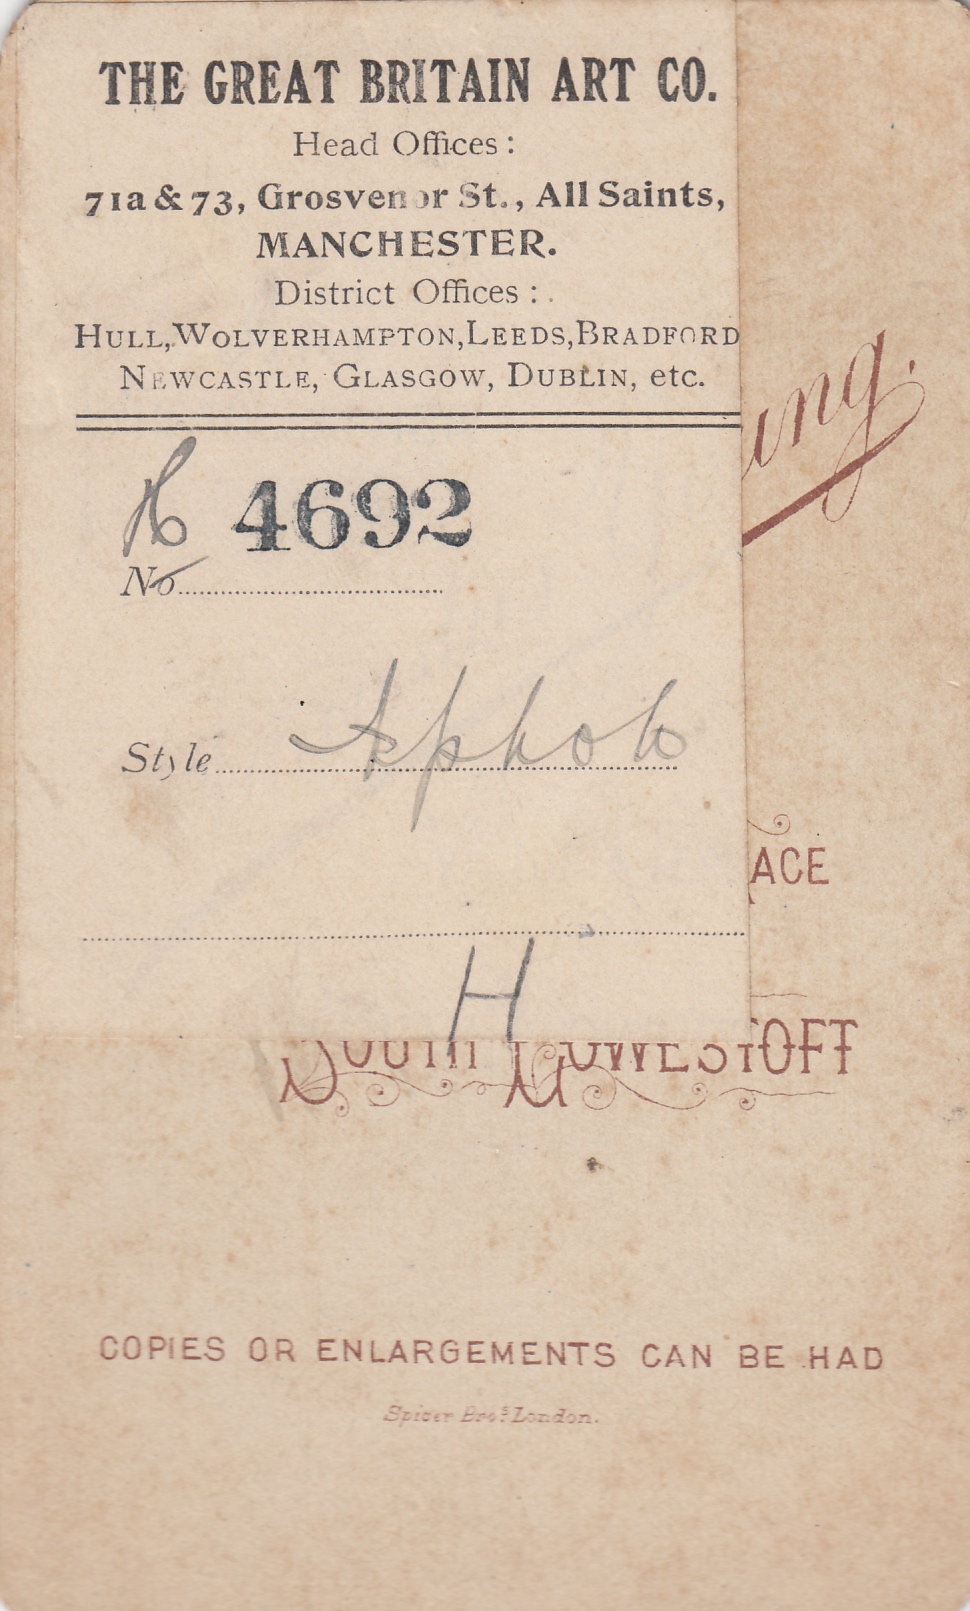 THE GREAT BRITAIN ART CO.
Head Offices:
71a & 73, Grosvenor St., All Saints,
MANCHESTER.
District Offices:
HULL, WOLVERHAMPTON, LEEDS, BRADFORD
NEWCASTLE, GLASGOW, DUBLIN, etc.
ing.
H 4692
No
Style
ACE
H
SOUTH LOWESTOFT
COPIES OR ENLARGEMENTS CAN BE HAD
Spicer Bros. London.